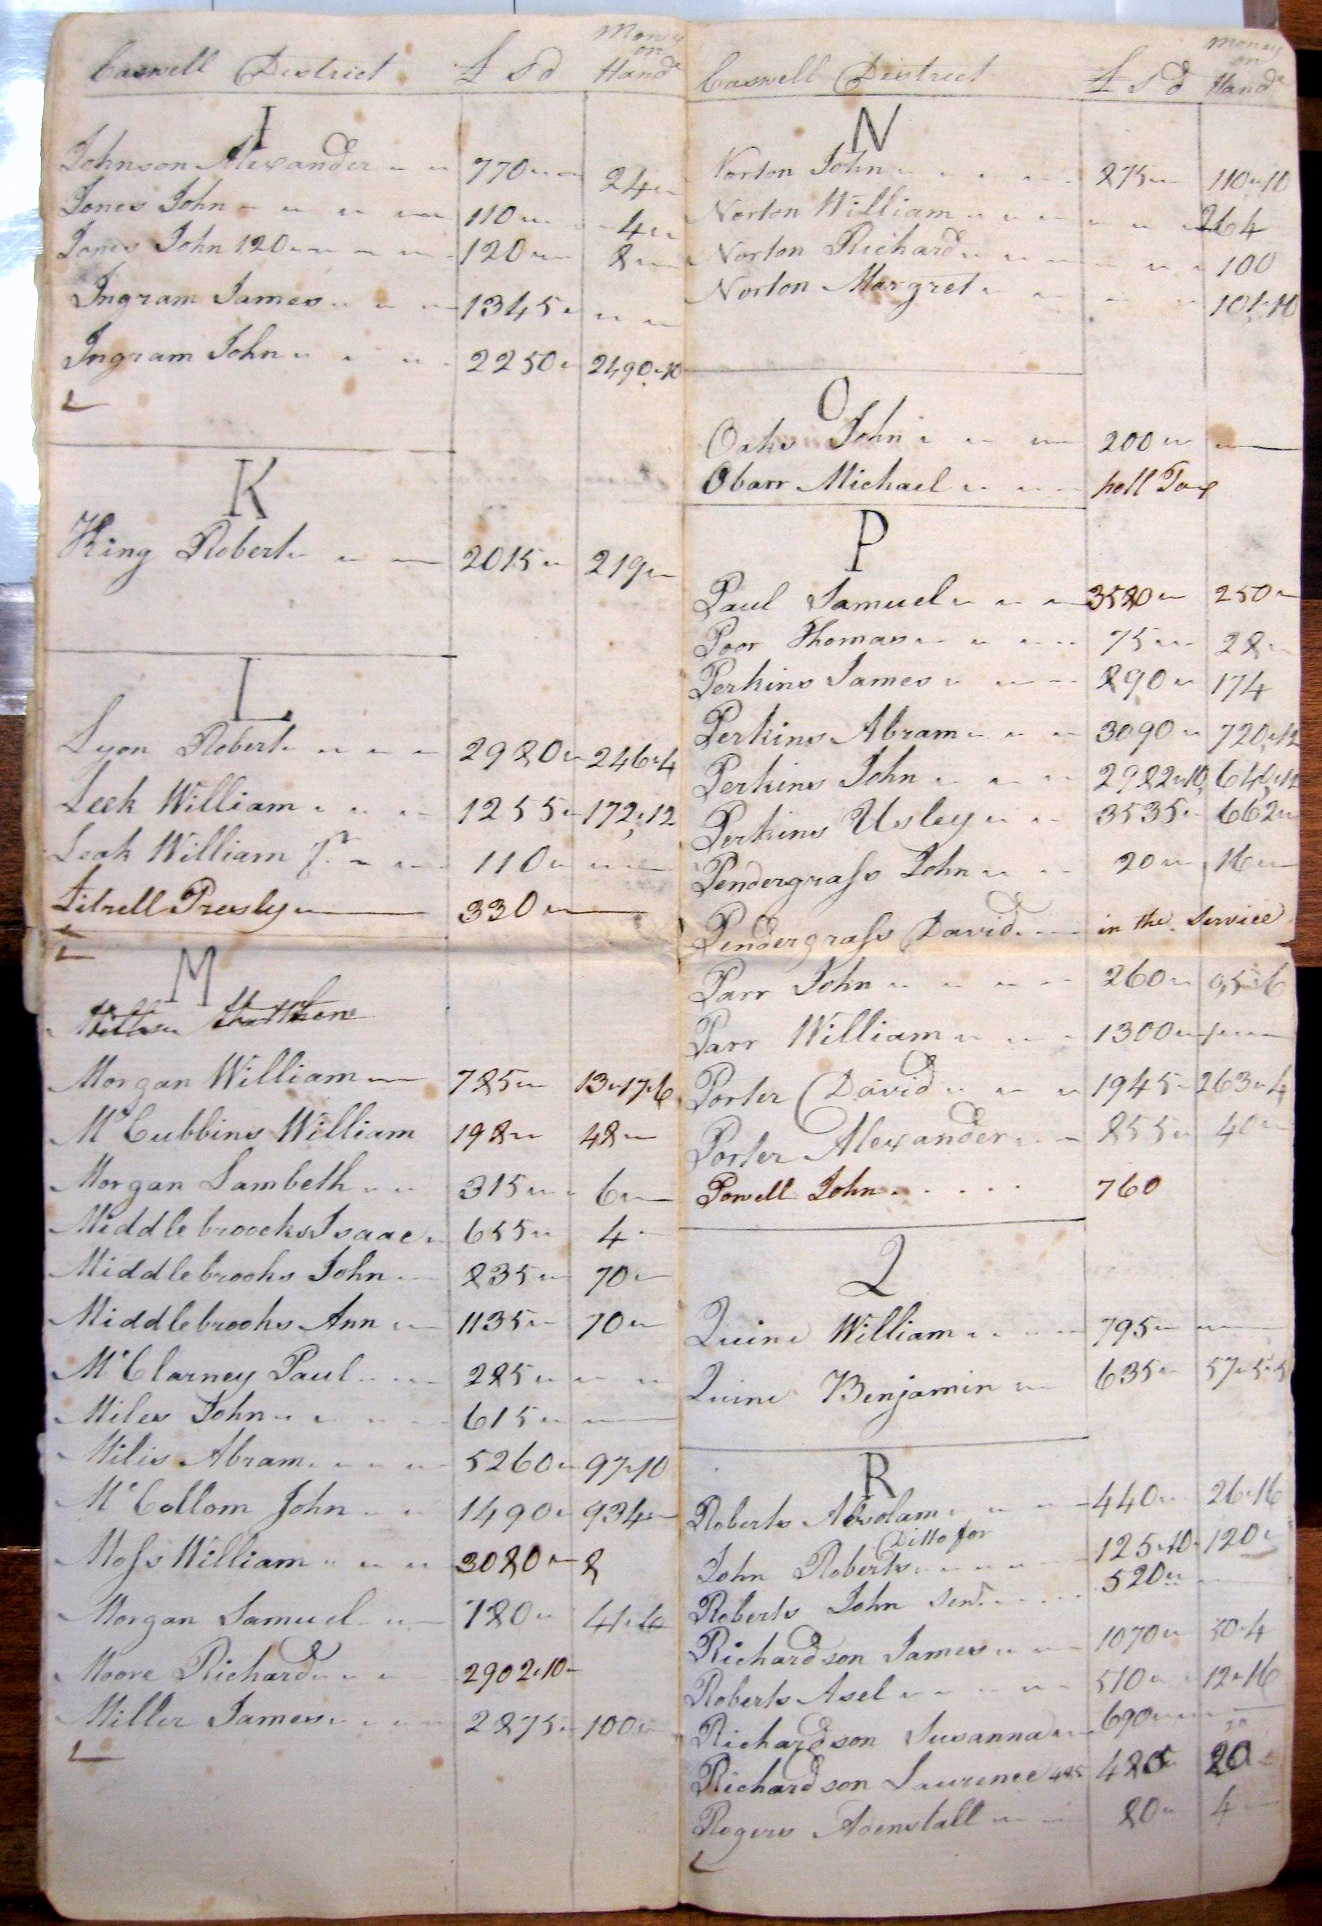 Caswell District £ S d Money on Hand
I
Johnson Alexander 770 24
Jones John 110 4
Jones John 120 120 8
Ingram James 1345
Ingram John 2250 2490"10
K
King Robert 2015 219
L
Lyon Robert 2980 246"4
Leek William 1255 172"12
Leak William Jr 110
Litrell Presly 330
M
Morgan William 785 13"17"6
Mc Cubbins William 198 48
Morgan Lambeth 315 6
Middlebroocks Isaac 655 4
Middlebrooks John 835 70
Middlebrooks Ann 1135 70
Mc Clarney Paul 285
Miles John 615
Milis Abram 5260 97"10
Mc Collom John 1490 934
Moss William 3080 8
Morgan Samuel 780
Moore Richard 2902"10
Miller James 2875 100
Caswell District £ S d Money on Hand
N
Norton John 875 110"10
Norton William 264
Norton Richard 100
Norton Margret 101"10
O
Oaks John 200
Obarr Michael poll Tax
P
Paul Samuel 3580 250
Poor Thomas 75 28
Perkins James 890 174
Perkins Abram 3090 720"12
Perkins John 2982"10 640"12
Perkins Usley 3535 662
Pendergrass John 20 16
Pendergrass David in the Service
Parr John 260
Parr William 1300
Porter David 1945 263"4
Porter Alexander 855 40
Powell John 760
Q
Quine William 795
Quine Benjamin 635 57"5"5
R
Roberts Absolam 440 26"16
Ditto for
John Roberts 125"10 120
Roberts John Senr 520
Richardson James 1070 50"4
Roberts Asel 510 12"16
Richardson Susanna 690
Richardson Laurence 485 485 20
Rogers 80 4